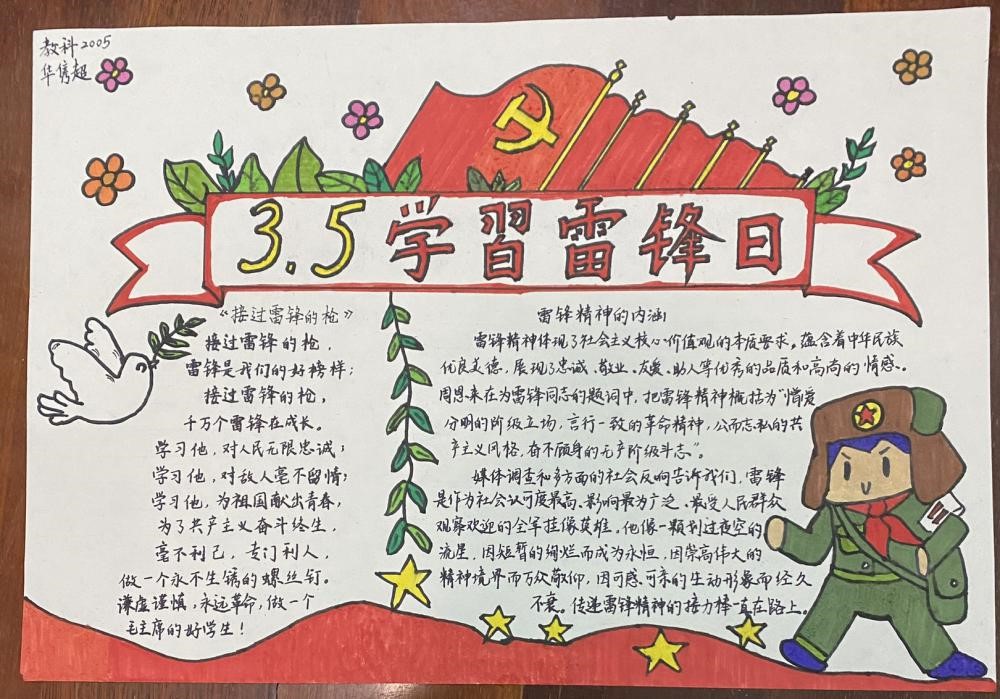 教科2005
华隽超
3.5学習雷锋日
《接过雷锋的枪》
接过雷锋的枪，
雷锋是我们的好榜样；
接过雷锋的枪，
千万个雷锋在成长。
学习他，对人民无限忠诚；
学习他，对敌人毫不留情；
学习他，为祖国献出青春，
为了共产主义奋斗终生，
毫不利己，专门利人，
做一个永不生锈的螺丝钉。
谦虚谨慎，永远革命，做一个
毛主席的好学生！
雷锋精神的内涵
雷锋精神体现了社会主义核心价值观的本质要求。蕴含着中华民族
优良美德，展现了忠诚、敬业、友爱、助人等优秀的品质和高尚的情感。
周恩来在为雷锋同志的题词中，把雷锋精神概括为“憎爱
分明的阶级立场，言行一致的革命精神，公而忘私的共
产主义风格，奋不顾身的无产阶级斗志”。
媒体调查和多方面的社会反响告诉我们，雷锋
是作为社会认可度最高、影响最为广泛、最受人民群众
观察欢迎的全军挂像英雄。他像一颗划过夜空的
流星，因短暂的绚烂而成为永恒，因崇高伟大的
精神境界而万众敬仰，因可感、可亲的生动形象而经久
不衰。传递雷锋精神的接力棒一直在路上。